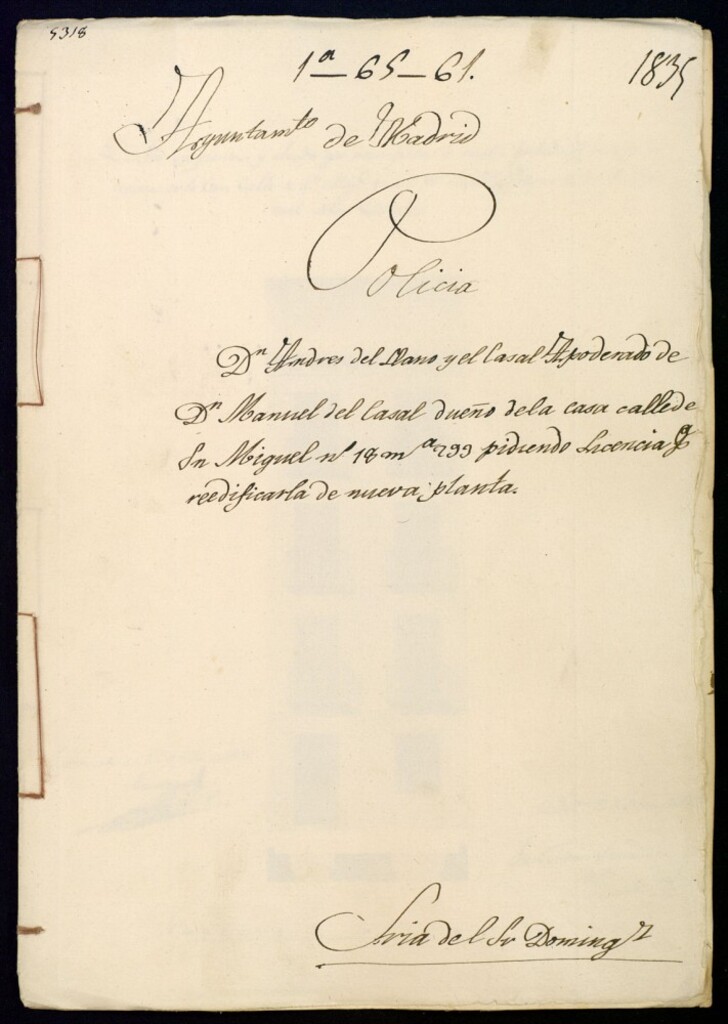 5318
1ª—65—61.
1835
Ayuntamto de Madrid
Policia
Dn Andres del Llano y el Casal Apoderado de
Dn Manuel del Casal dueño dela casa calle de
Sn Miguel no 18 mª 299 pidiendo Licencia pª
reedificarla de nueva planta.
Sria del Sr Domingz